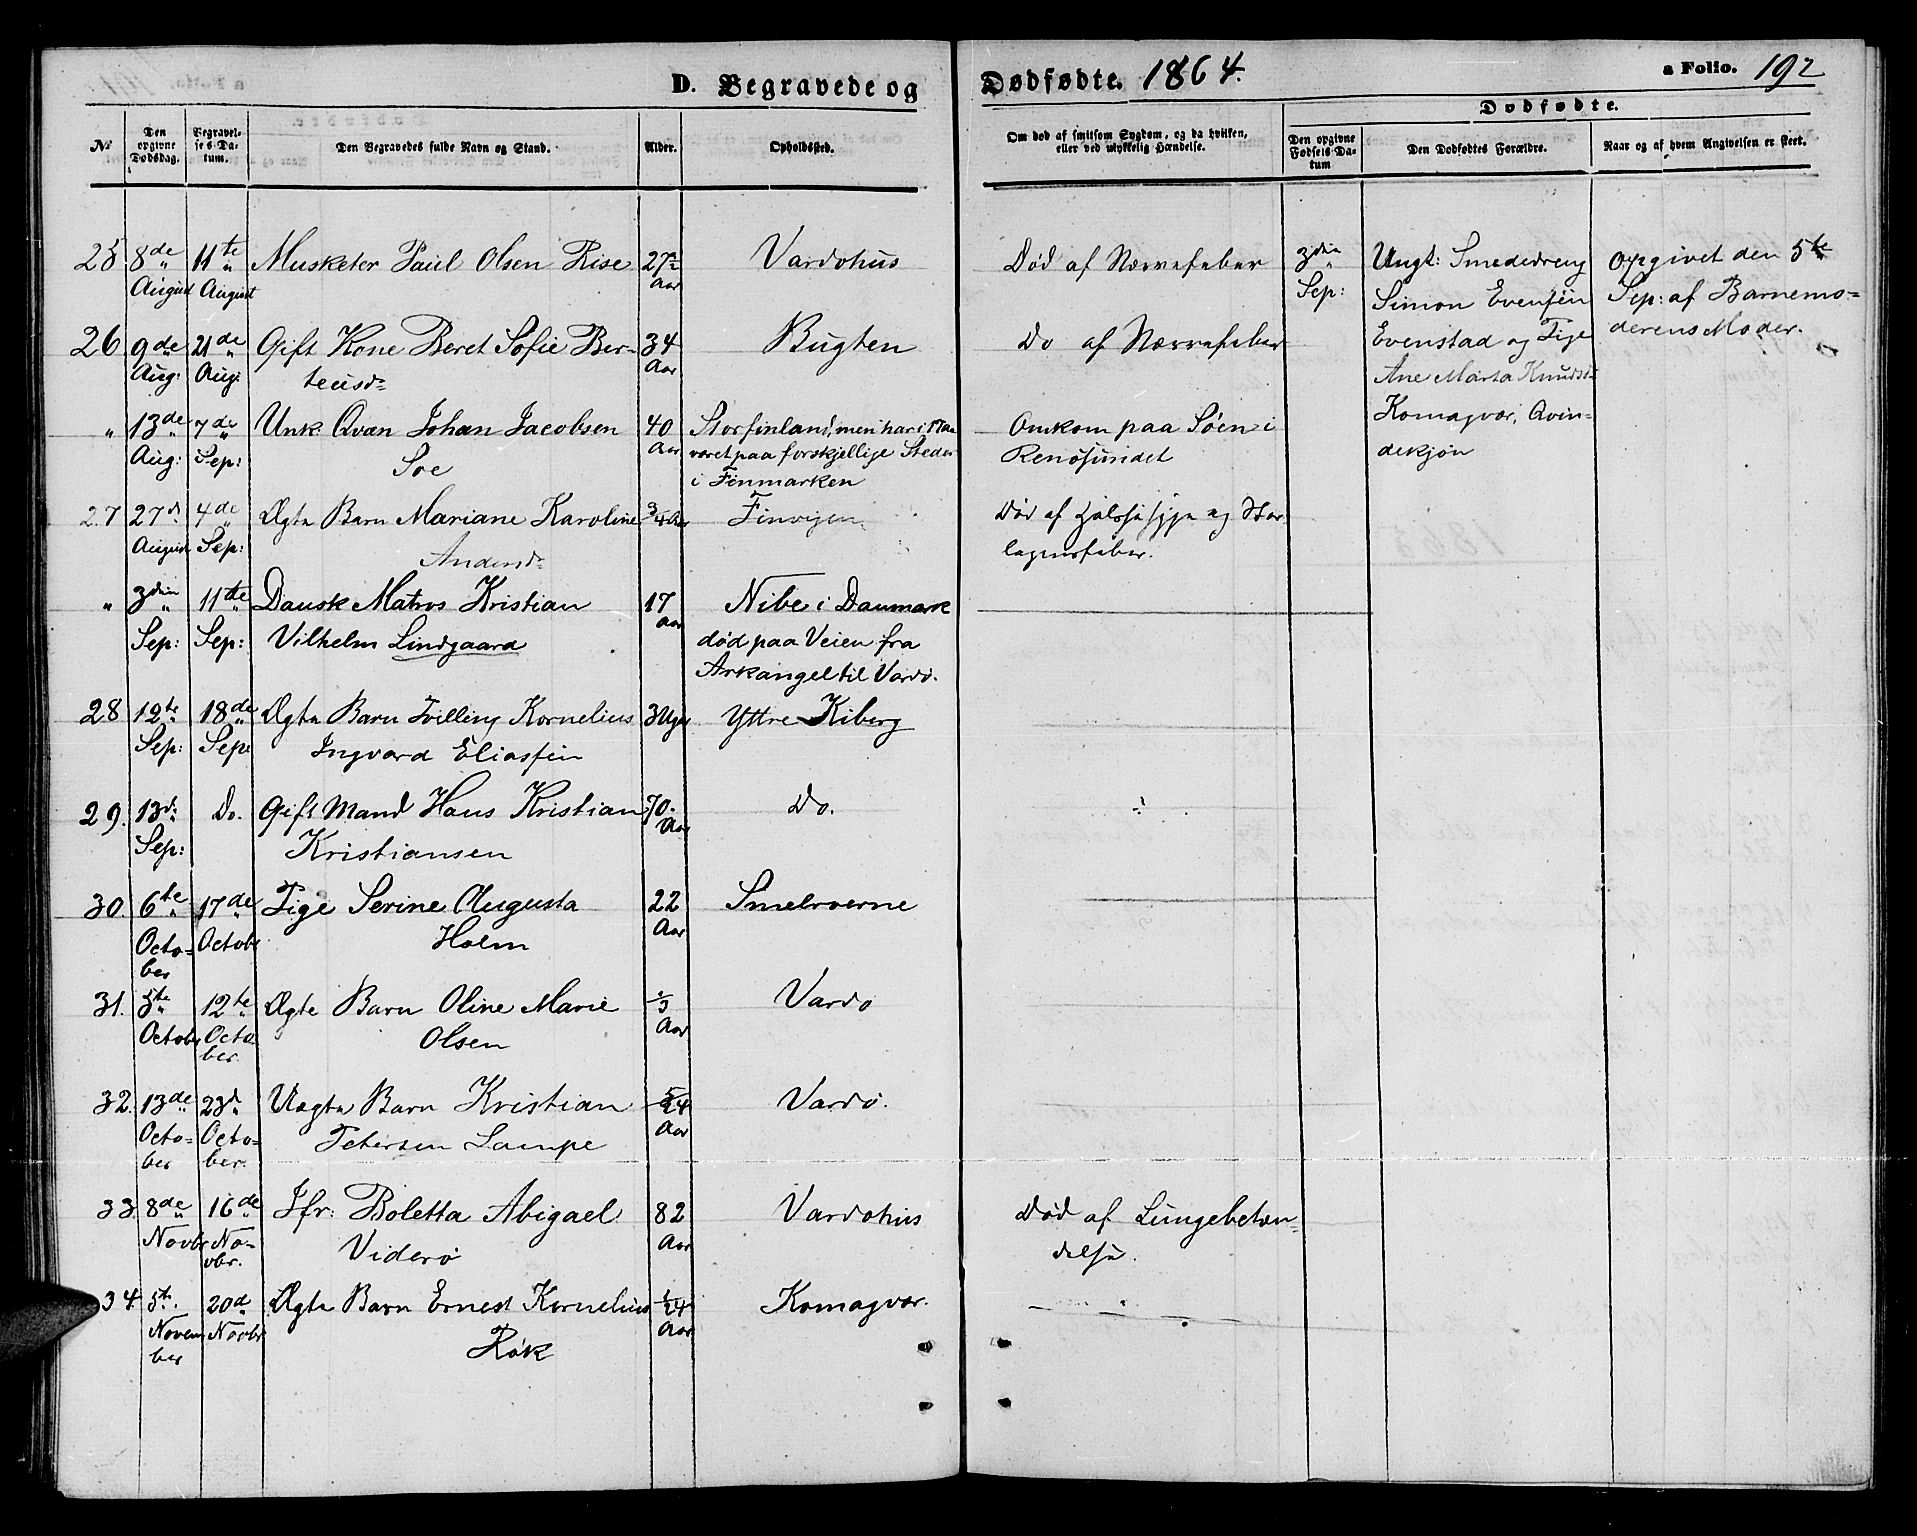 D. Begravede og Dødfødte. 1864. a Folio. 192
Dødfødte.
№ Den opgivne Dødsdag. Begravelses-Datum. Den Begravedes fulde Navn og Stand. Alder. Opholdssted. Om død af smitsom Sygdom, og da hvilken, eller ved ulykkelig Hændelse. Den opgivne Fødsels-Datum Den Dødfødtes Forældre. Naar og af hvem Angivelsen er skeet.
25 8de 11te Musketer Paul Olsen Rise 27½ Vardøhus
August August Aar
Død af Nervefeber
3die Sep:
Ungk: Smededreng
Simon Evensen
Evenstad og Pige
Ane Marta Knudsd:
Komagvær, Qvin-
dekjøn
opgivet den 5te
Sep: af Barnemo-
derens Moder.
26 9de 21de Gift Kone Beret Sofie Ber- 34 Bugten
Aug: Aug: teusd: Aar
Do af Nervefeber
" 13de 7de Unk. Qvæn Johan Jacobsen 40 Storfinland, men har i
Aug: Sep: Soe Aar været paa forskjellige Steder
i Finmarken
Omkom paa Søen i
Renøsundet
27 27d 4de Ægte Barn Mariane Karoline ¾ Aar Finvigen
August Sep: Andersd:
Død af Halssyge og Skar-
lagensfeber.
" 3die 11te Dansk Matros Kristian 17 Nibe i Danmark
Sep: Sep: Vilhelm Lindgaard Aar død paa Veien fra
Arkangel til Vardø.
28 12te 18de Ægte Barn Tvilling Kornelius 3 Uger Yttre Kiberg
Sep: Sep: Ingvard Eliassen
29. 13d: Do. Gift Mand Hans Kristian 70. Do.
Sep: Kristiansen Aar
30. 6te 17de Pige Serine Augusta 22 Smelrorerne
Octo- Octobr Holm Aar
ber
31. 5te 12te Ægte Barn Oline Marie ⅓ Vardø
Octobr Octo- Olsen Aar
ber.
32. 13de 23d Uægte Barn Kristian 5/24 Vardø.
Octo- Octo- Petersen Lampe Aar
ber ber.
33. 8de 16de Jfr: Boletta Abigael 82 Vardøhus
Novbr No- Viderø Aar
vbr.
Død af Lungebetæn-
delse.
34. 5te 20d Ægte Barn Ernest Kornelius 1/24 Komagvær.
Novem Novbr Røk Aar
ber